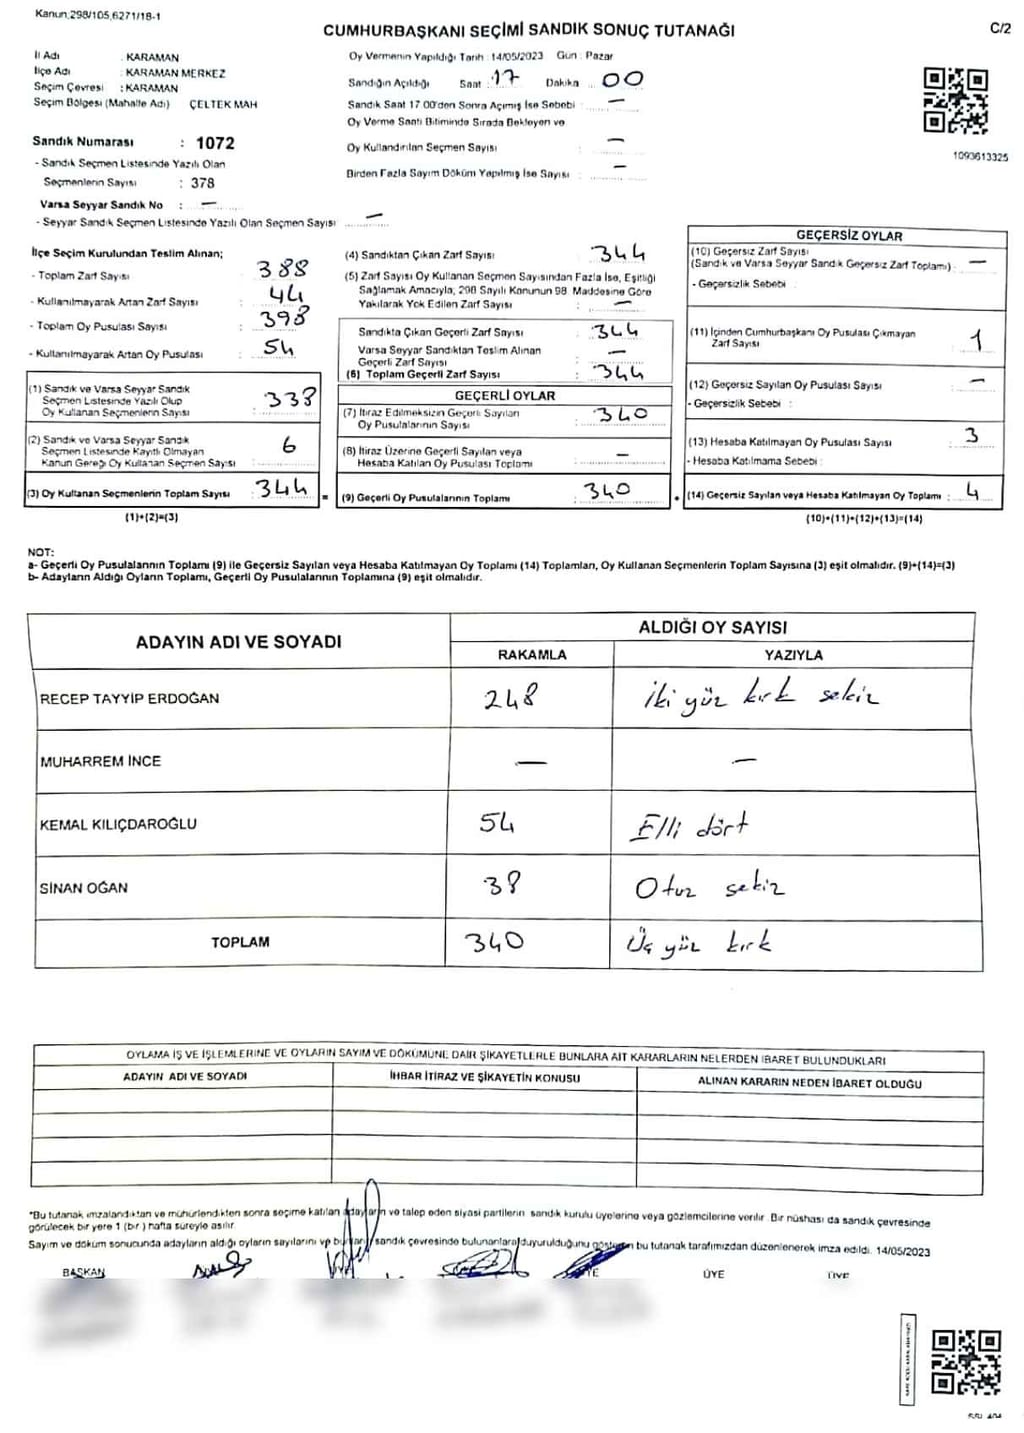 Kanun,298/105,6271/18-1
CUMHURBAŞKANI SEÇİMİ SANDIK SONUÇ TUTANAĞI
C/2
İl Adı : KARAMAN
İlçe Adı : KARAMAN MERKEZ
Seçim Çevresi : KARAMAN
Seçim Bölgesi (Mahalle Adı) ÇELTEK MAH
Sandık Numarası : 1072
- Sandık Seçmen Listesinde Yazılı Olan
Seçmenlerin Sayısı : 378
Varsa Seyyar Sandık No : —
- Seyyar Sandık Seçmen Listesinde Yazılı Olan Seçmen Sayısı —
Oy Vermenin Yapıldığı Tarih : 14/05/2023 Gün : Pazar
Sandığın Açıldığı Saat 17 Dakika 00
Sandık Saat 17.00'den Sonra Açımış İse Sebebi : —
Oy Verme Saati Bitiminde Sırada Bekleyen ve
Oy Kullandırılan Seçmen Sayısı : —
Birden Fazla Sayım Döküm Yapılmış İse Sayısı : —
1093613325
İlçe Seçim Kurulundan Teslim Alınan;
- Toplam Zarf Sayısı : 388
- Kullanılmayarak Artan Zarf Sayısı : 44
- Toplam Oy Pusulası Sayısı : 398
- Kullanılmayarak Artan Oy Pusulası : 54
(1) Sandık ve Varsa Seyyar Sandık
Seçmen Listesinde Yazılı Olup
Oy Kullanan Seçmenlerin Sayısı : 338
(2) Sandık ve Varsa Seyyar Sandık
Seçmen Listesinde Kayıtlı Olmayan
Kanun Gereği Oy Kullanan Seçmen Sayısı : 6
(3) Oy Kullanan Seçmenlerin Toplam Sayısı : 344 =
(1)+(2)=(3)
(4) Sandıktan Çıkan Zarf Sayısı : 344
(5) Zarf Sayısı Oy Kullanan Seçmen Sayısından Fazla İse, Eşitliği
Sağlamak Amacıyla, 298 Sayılı Kanunun 98. Maddesine Göre
Yakılarak Yok Edilen Zarf Sayısı : —
Sandıkta Çıkan Geçerli Zarf Sayısı : 344
Varsa Seyyar Sandıktan Teslim Alınan
Geçerli Zarf Sayısı : —
(6) Toplam Geçerli Zarf Sayısı : 344
GEÇERLİ OYLAR
(7) İtiraz Edilmeksizin Geçerli Sayılan
Oy Pusulalarının Sayısı : 340
(8) İtiraz Üzerine Geçerli Sayılan veya
Hesaba Katılan Oy Pusulası Toplamı : —
(9) Geçerli Oy Pusulalarının Toplamı : 340 +
GEÇERSİZ OYLAR
(10) Geçersiz Zarf Sayısı
(Sandık ve Varsa Seyyar Sandık Geçersiz Zarf Toplamı) : —
- Geçersizlik Sebebi :
(11) İçinden Cumhurbaşkanı Oy Pusulası Çıkmayan
Zarf Sayısı : 1
(12) Geçersiz Sayılan Oy Pusulası Sayısı : —
- Geçersizlik Sebebi :
(13) Hesaba Katılmayan Oy Pusulası Sayısı : 3
- Hesaba Katılmama Sebebi :
(14) Geçersiz Sayılan veya Hesaba Katılmayan Oy Toplamı : 4
(10)+(11)+(12)+(13)=(14)
NOT:
a- Geçerli Oy Pusulalarının Toplamı (9) ile Geçersiz Sayılan veya Hesaba Katılmayan Oy Toplamı (14) Toplamları, Oy Kullanan Seçmenlerin Toplam Sayısına (3) eşit olmalıdır. (9)+(14)=(3)
b- Adayların Aldığı Oyların Toplamı, Geçerli Oy Pusulalarının Toplamına (9) eşit olmalıdır.
ADAYIN ADI VE SOYADI
ALDIĞI OY SAYISI
RAKAMLA YAZIYLA
RECEP TAYYİP ERDOĞAN 248 İki yüz kırk sekiz
MUHARREM İNCE — —
KEMAL KILIÇDAROĞLU 54 Elli dört
SİNAN OĞAN 38 Otuz sekiz
TOPLAM 340 Üç yüz kırk
OYLAMA İŞ VE İŞLEMLERİNE VE OYLARIN SAYIM VE DÖKÜMÜNE DAİR ŞİKAYETLERLE BUNLARA AİT KARARLARIN NELERDEN İBARET BULUNDUKLARI
ADAYIN ADI VE SOYADI İHBAR İTİRAZ VE ŞİKAYETİN KONUSU ALINAN KARARIN NEDEN İBARET OLDUĞU
*Bu tutanak imzalandıktan ve mühürlendikten sonra seçime katılan adayların ve talep eden siyasi partilerin sandık kurulu üyelerine veya gözlemcilerine verilir. Bir nüshası da sandık çevresinde
görülecek bir yere 1 (bir) hafta süreyle asılır.
Sayım ve döküm sonucunda adayların aldığı oyların sayılarını ve sandık çevresinde bulunanlara duyurulduğunu gösteren bu tutanak tarafımızdan düzenlenerek imza edildi. 14/05/2023
BAŞKAN ÜYE ÜYE